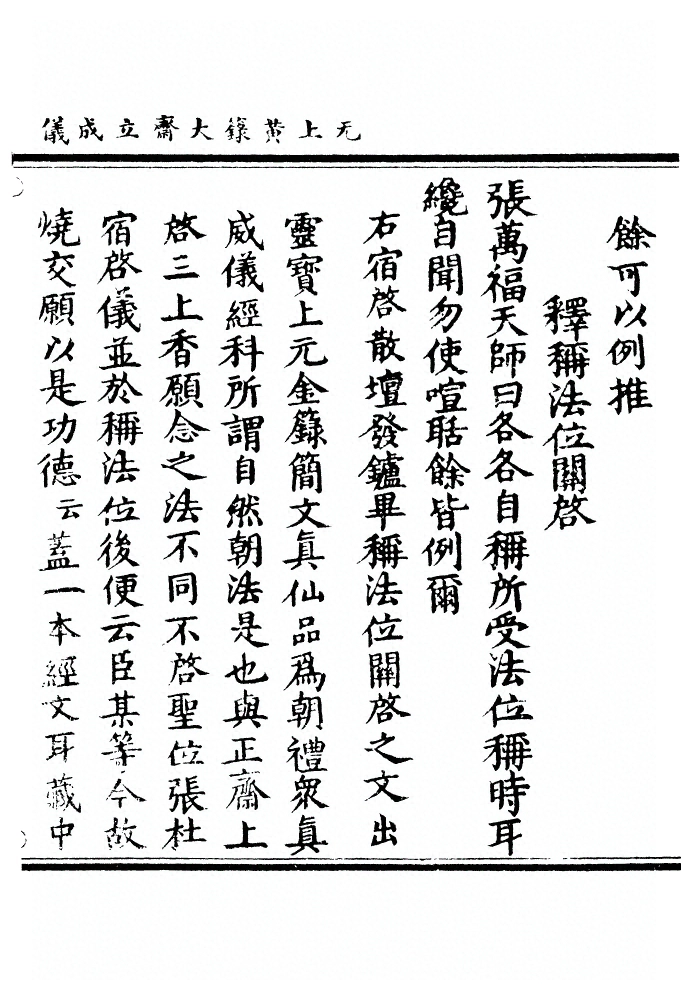 无上黃籙大齋立成儀
餘可以例推
釋稱法位關啓
張萬福天師曰各各自稱所受法位稱時耳
纔自聞勿使喧聒餘皆例爾
右宿啓散壇發鑪畢稱法位關啓之文出
靈寶上元金籙簡文眞仙品爲朝禮衆眞
威儀經科所謂自然朝法是也與正齋上
啓三上香願念之法不同不啓聖位張杜
宿啓儀並於稱法位後便云臣某等今故
燒交願以是功德云蓋一本經文耳藏中